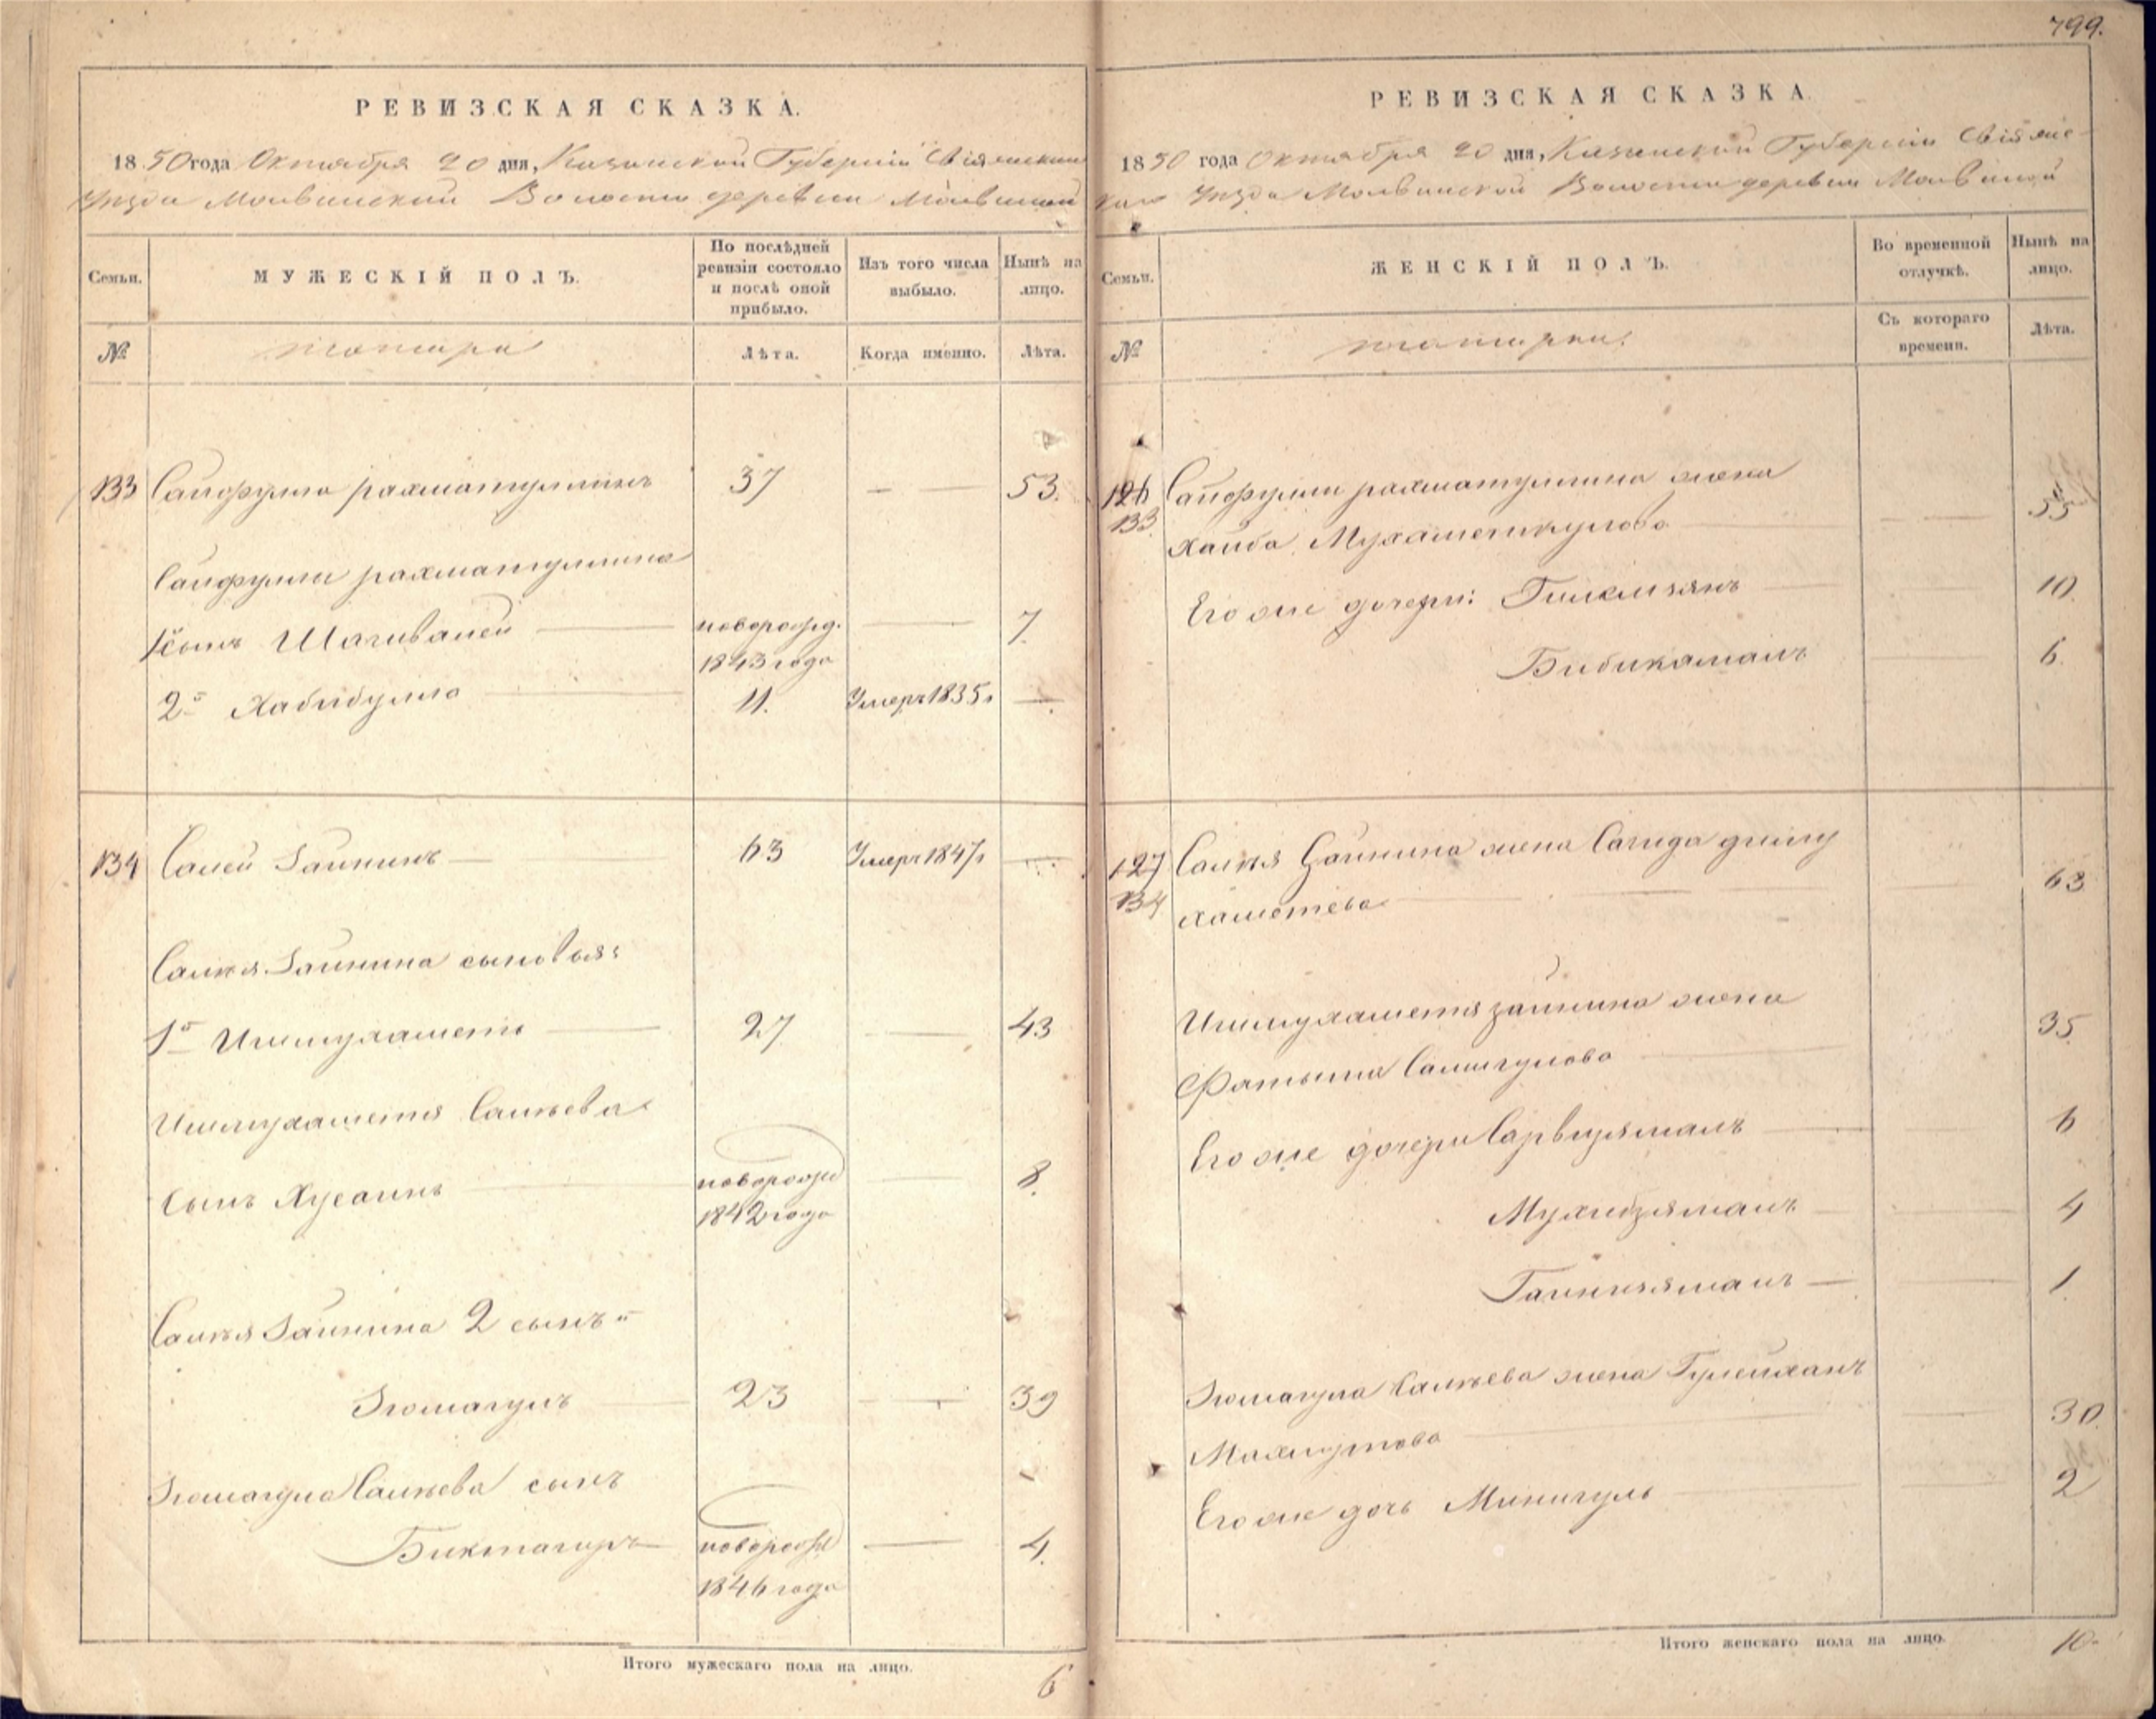 799.
РЕВИЗСКАЯ СКАЗКА.
1850 года Октября 20 дня, Казанской Губернiи Свiяжскаго
Уезда Молвинской Волости деревни Молвиной
Семьи.
МУЖЕСКIЙ ПОЛЪ.
По послѣдней ревизiи состояло и послѣ оной прибыло.
Изъ того числа выбыло.
Нынѣ на лицо.
№
татара
Лѣта.
Когда именно.
Лѣта.
133 Сайфулла рахматуллинъ 37 — — 53.
Сайфуллы рахматуллина
1й сынъ Шагивалей — новорожд. — 7.
1843 года
2й Хабибулла — 11. Умеръ 1835 г —
134 Салей Зайнинъ — 63 Умеръ 1847 г —
Салѣя Зайнина сыновья:
1й Ишмухаметъ — 27 — 43
Ишмухаметя Салѣева
сынъ Хусаинъ — новорожд — 8.
1842 года
Салѣя Зайнина 2 сынъ
Зюмагулъ 23 — 39
Зюмагула Салѣева сынъ
Биктагиръ новорож — 4.
1846 года
Итого мужескаго пола на лицо. 6
РЕВИЗСКАЯ СКАЗКА.
1850 года Октября 20 дня, Казанской Губернiи Свiяжс-
каго Уезда Молвинской Волости деревни Молвиной
Семьи.
ЖЕНСКIЙ ПОЛЪ.
Во временной отлучкѣ.
Нынѣ на лицо.
№
татарки.
Съ котораго времени.
Лѣта.
126 Сайфуллы рахматуллина жена
133 Хаиба Мухаметкулова — — 55
Его же дочери: Гилемзянъ — 10.
Бибикамалъ — 6.
127 Салѣя Зайнина жена Сагида динму
134 хаметева — — 63
Ишмухаметя зайнина жена
Фатыма Салигулова — 35.
Его же дочери Сарвизямалъ — 6
Мухибзямалъ — 4
Гайнизямалъ — 1.
Зюмагула Салѣева жена Гулейханъ
Махмутова — 30.
Его же дочь Минигуль — 2
Итого женскаго пола на лицо. 10.